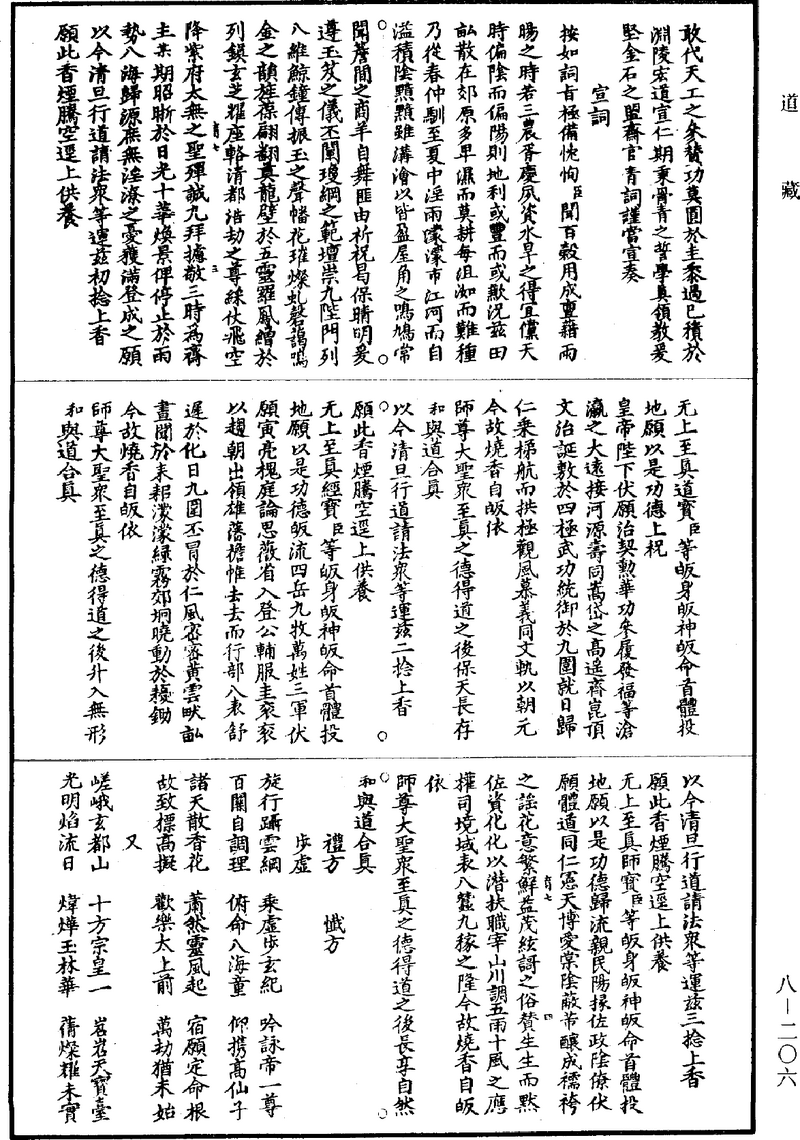 道藏
敢代天工之參贊功莫圓於圭黍過已積於
淵陵宏道宣仁期秉骨青之誓學真領教爰
堅金石之盟齋官青詞謹當宣奏
宣詞
按如詞旨極備悃恂臣聞百穀用成豐藉雨
暘之時若三農胥慶夙資水旱之得宜儻天
時偏陰而偏陽則地利或豐而或歉況茲田
畝散在郊原多旱濕而莫耕每沮洳而難種
乃從春仲馴至夏中淫雨濛濛市江河而自
溢積陰黯黯雖溝澮以皆盈屋角之鳴鳩常
聞簷間之商羊自舞匪由祈祝曷保晴明爰
遵玉笈之儀丕闡瓊綱之範壇崇九陛門列
八維鯨鐘傳振玉之聲幡花璀燦虬磬藹鳴
金之韻旌葆翩翻真龍壁於五靈羅鳳繒於
列鎮玄芝耀座輅清都浩劫之尊綵仗飛空
降紫府太無之聖殫誠九拜攄敬三時為齋
主某期昭晰於日光十華煥景俾停止於雨
勢八海歸源庶無淫潦之憂獲滿登成之願
以今清旦行道請法眾等運茲初捻上香
願此香煙騰空逕上供養
无上至真道寶臣等皈身皈神皈命首體投
地願以是功德上祝
皇帝陛下伏願治契勳華功參履發福等滄
瀛之大遠接河源壽同嵩岱之高遥齊崑頂
文治誕敷於四極武功統御於九圍就日歸
仁乘梯航而拱極觀風慕義同文軌以朝元
今故燒香自皈依
師尊大聖眾至真之德得道之後保天長存
和與道合真
以今清旦行道請法眾等運茲二捻上香
願此香煙騰空逕上供養
无上至真經寶臣等皈身皈神皈命首體投
地願以是功德皈流四岳九牧萬姓三軍伏
願寅亮槐庭論思薇省入登公輔服圭衮衮
以趨朝出領雄藩襜帷去去而行部八表舒
遲於化日九圍丕冒於仁風密密黃雲畎畝
晝聞於耒耜濛濛綠霧郊坰曉動於耰鋤
今故燒香自皈依
師尊大聖眾至真之德得道之後升入無形
和與道合真
以今清旦行道請法眾等運茲三捻上香
願此香煙騰空逕上供養
无上至真師寶臣等皈身皈神皈命首體投
地願以是功德歸流親民陽掾佐政陰僚伏
願體道同仁憲天博愛棠陰蔽芾釀成襦袴
之謠花意繁鮮益茂絃謌之俗贊生生而默
佐資化化以潛扶職宰山川調五雨十風之應
權司境域表八蠶九稼之隆今故燒香自皈
依
師尊大聖眾至真之德得道之後長享自然
和與道合真
禮方 懺方
步虛
旋行躡雲綱 乘虛步玄紀 吟詠帝一尊
百關自調理 俯命八海童 仰携高仙子
諸天散香花 蕭然靈風起 宿願定命根
故致標高擬 歡樂太上前 萬劫猶未始
又
嵯峨玄都山 十方宗皇一 岧岧天寶臺
光明焰流日 煒燁玉林華 蒨燦耀朱實
八—二〇六